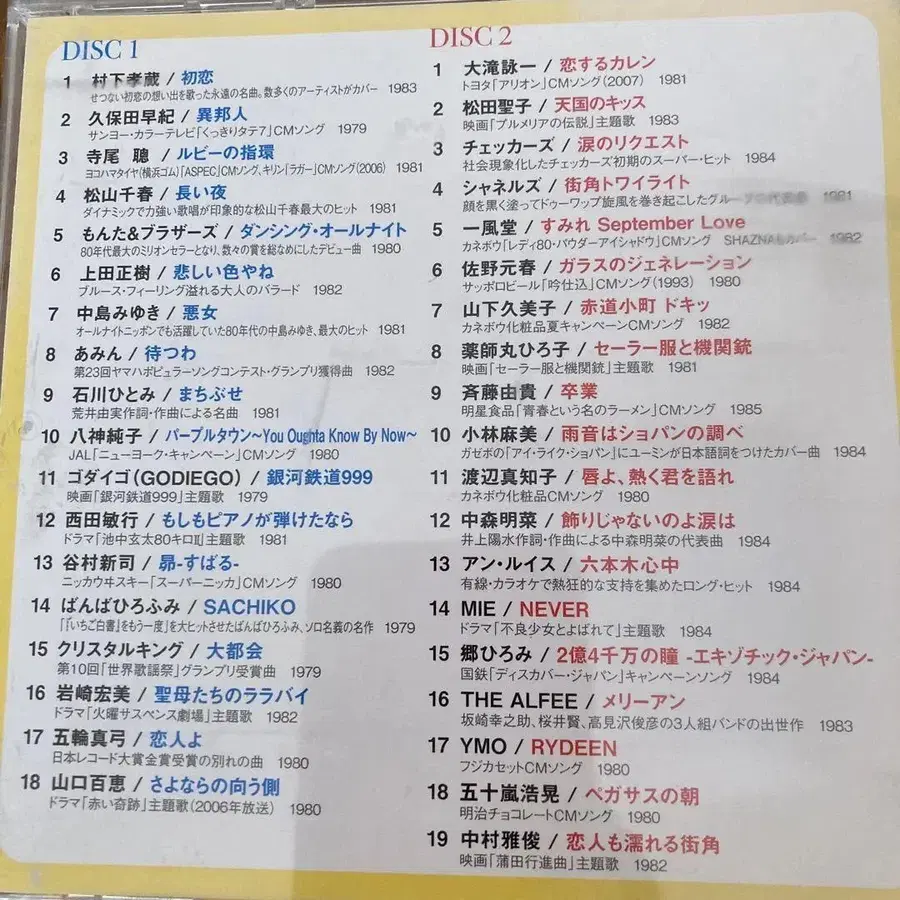 DISC 1
1 村下孝蔵 / 初恋
せつない初恋の想い出を歌った永遠の名曲。数多くのアーティストがカバー 1983
2 久保田早紀 / 異邦人
サンヨー・カラーテレビ「くっきりタテ7」CMソング 1979
3 寺尾 聰 / ルビーの指環
ヨコハマタイヤ(横浜ゴム)「ASPEC」CMソング、キリン「ラガー」CMソング(2006) 1981
4 松山千春 / 長い夜
ダイナミックで力強い歌唱が印象的な松山千春最大のヒット 1981
5 もんた&ブラザーズ / ダンシング・オールナイト
80年代最大のミリオンセラーとなり、数々の賞を総なめにしたデビュー曲 1980
6 上田正樹 / 悲しい色やね
ブルース・フィーリング溢れる大人のバラード 1982
7 中島みゆき / 悪女
オールナイトニッポンでも活躍していた80年代の中島みゆき、最大のヒット 1981
8 あみん / 待つわ
第23回ヤマハポピュラーソングコンテスト・グランプリ獲得曲 1982
9 石川ひとみ / まちぶせ
荒井由実作詞・作曲による名曲 1981
10 八神純子 / パープルタウン〜You Oughta Know By Now〜
JAL「ニューヨーク・キャンペーン」CMソング 1980
11 ゴダイゴ(GODIEGO) / 銀河鉄道999
映画「銀河鉄道999」主題歌 1979
12 西田敏行 / もしもピアノが弾けたなら
ドラマ「池中玄太80キロⅡ」主題歌 1981
13 谷村新司 / 昴-すばる-
ニッカウヰスキー「スーパーニッカ」CMソング 1980
14 ばんばひろふみ / SACHIKO
「『いちご白書』をもう一度」を大ヒットさせたばんばひろふみ、ソロ名義の名作 1979
15 クリスタルキング / 大都会
第10回「世界歌謡祭」グランプリ受賞曲 1979
16 岩崎宏美 / 聖母たちのララバイ
ドラマ「火曜サスペンス劇場」主題歌 1982
17 五輪真弓 / 恋人よ
日本レコード大賞金賞受賞の別れの曲 1980
18 山口百恵 / さよならの向う側
ドラマ「赤い奇跡」主題歌(2006年放送) 1980
DISC 2
1 大滝詠一 / 恋するカレン
トヨタ「アリオン」CMソング(2007) 1981
2 松田聖子 / 天国のキッス
映画「プルメリアの伝説」主題歌 1983
3 チェッカーズ / 涙のリクエスト
社会現象化したチェッカーズ初期のスーパー・ヒット 1984
4 シャネルズ / 街角トワイライト
顔を黒く塗ってドゥーワップ旋風を巻き起こしたグループの代表曲 1981
5 一風堂 / すみれ September Love
カネボウ「レディ80・パウダーアイシャドウ」CMソング SHAZNAもカバー 1982
6 佐野元春 / ガラスのジェネレーション
サッポロビール「吟仕込」CMソング(1993) 1980
7 山下久美子 / 赤道小町 ドキッ
カネボウ化粧品夏キャンペーンCMソング 1982
8 薬師丸ひろ子 / セーラー服と機関銃
映画「セーラー服と機関銃」主題歌 1981
9 斉藤由貴 / 卒業
明星食品「青春という名のラーメン」CMソング 1985
10 小林麻美 / 雨音はショパンの調べ
ガゼボの「アイ・ライク・ショパン」にユーミンが日本語詞をつけたカバー曲 1984
11 渡辺真知子 / 唇よ、熱く君を語れ
カネボウ化粧品CMソング 1980
12 中森明菜 / 飾りじゃないのよ涙は
井上陽水作詞・作曲による中森明菜の代表曲 1984
13 アン・ルイス / 六本木心中
有線・カラオケで熱狂的な支持を集めたロング・ヒット 1984
14 MIE / NEVER
ドラマ「不良少女とよばれて」主題歌 1984
15 郷ひろみ / 2億4千万の瞳 -エキゾチック・ジャパン-
国鉄「ディスカバー・ジャパン」キャンペーンソング 1984
16 THE ALFEE / メリーアン
坂崎幸之助、桜井賢、高見沢俊彦の3人組バンドの出世作 1983
17 YMO / RYDEEN
フジカセットCMソング 1980
18 五十嵐浩晃 / ペガサスの朝
明治チョコレートCMソング 1980
19 中村雅俊 / 恋人も濡れる街角
映画「蒲田行進曲」主題歌 1982